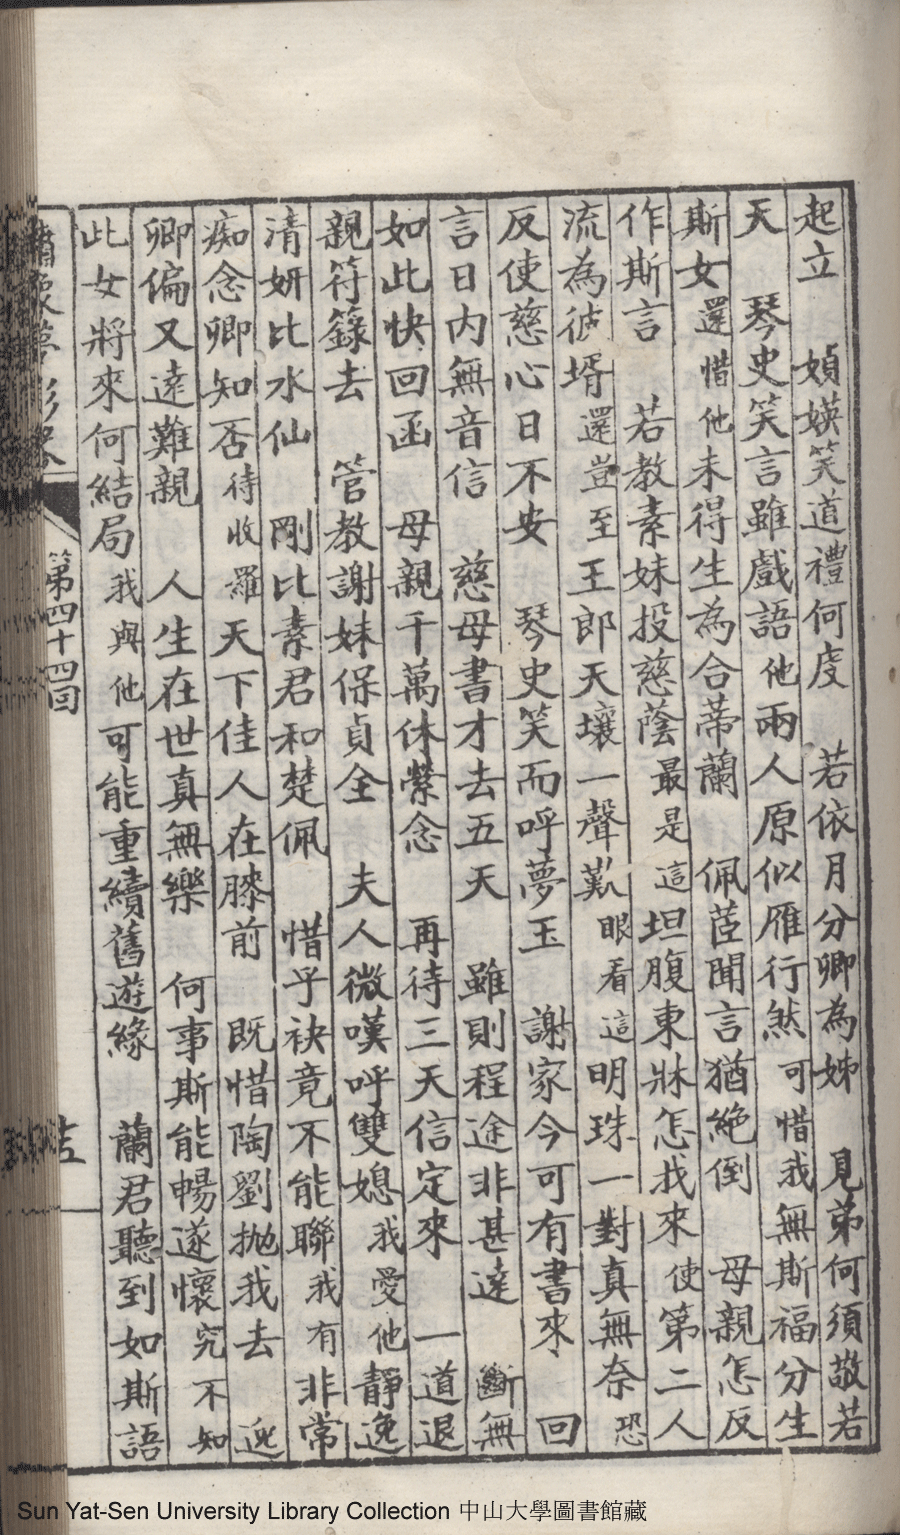 起立　媜媖笑道禮何虔　若依月分卿為姊　見弟何須敬若
天　琴史笑言雖戲語他兩人原似雁行然可惜我無斯福分生
斯女還惜他未得生為合蒂蘭　佩茝聞言猶絕倒　母親怎反
作斯言　若教素妹投慈蔭最是這坦腹東牀怎我來使第二人
流為彼壻還豈至王郎天壤一聲歎眼看這明珠一對真無奈恐
反使慈心日不安　琴史笑而呼夢玉　謝家今可有書來　回
言日內無音信　慈母書才去五天　雖則程途非甚遠　斷無
如此快回函　母親千萬休縈念　再待三天信定來　一道退
親符籙去　管教謝妹保貞全　夫人微嘆呼雙媳我愛他靜逸
清妍比水仙　剛比素君和楚佩　惜乎袂竟不能聯我有非常
痴念卿知否待收羅天下佳人在膝前　既惜陶劉拋我去　
卿偏又遠難親　人生在世真無樂　何事斯能暢遂懷究不知
此女將來何結局我與他可能重續舊遊緣　蘭君聽到如斯語
第四十四回
Sun Yat-Sen University Library Collection 中山大學圖書館藏